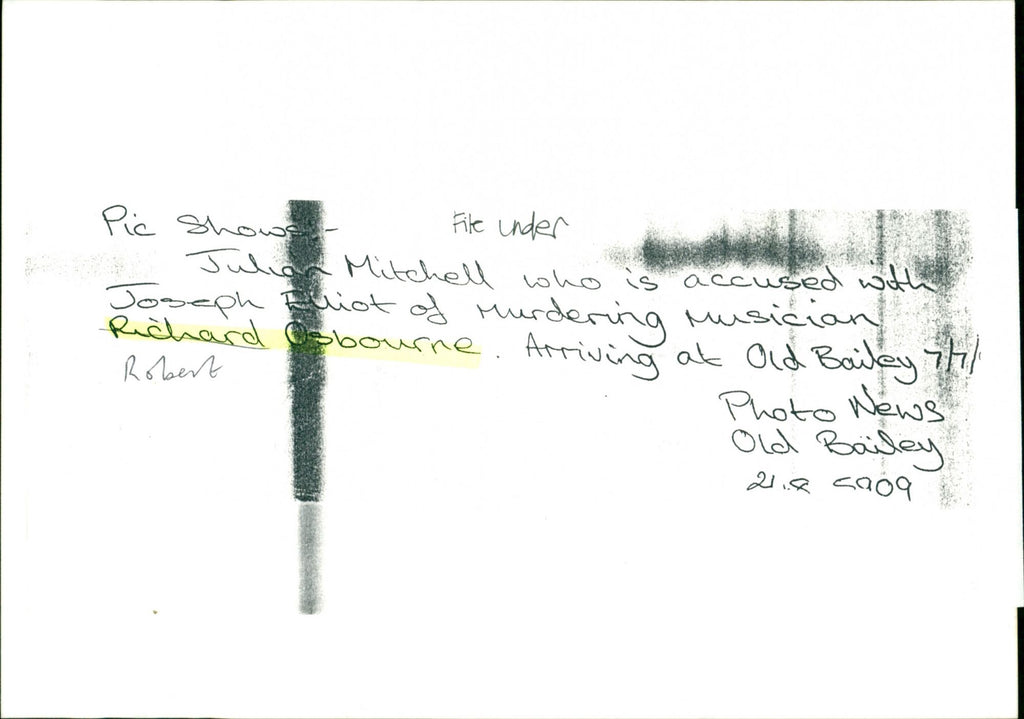 Pic Shows -
File under
Julian Mitchell who is accused with
Joseph Elliot of Murdering Musician
Richard Osbourne. Arriving at Old Bailey 7/7/
Robert
Photo News
Old Bailey